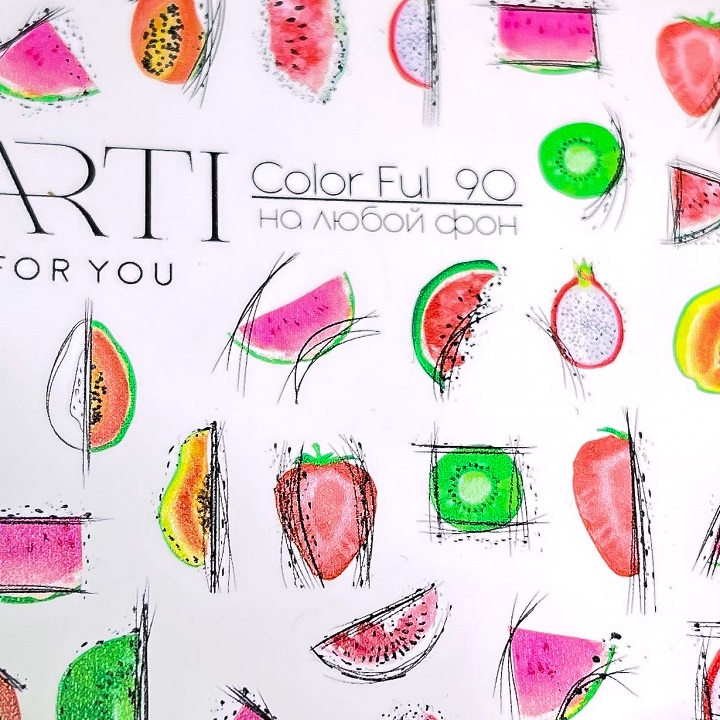 ARTI
FOR YOU
Color Ful 90
на любой фон